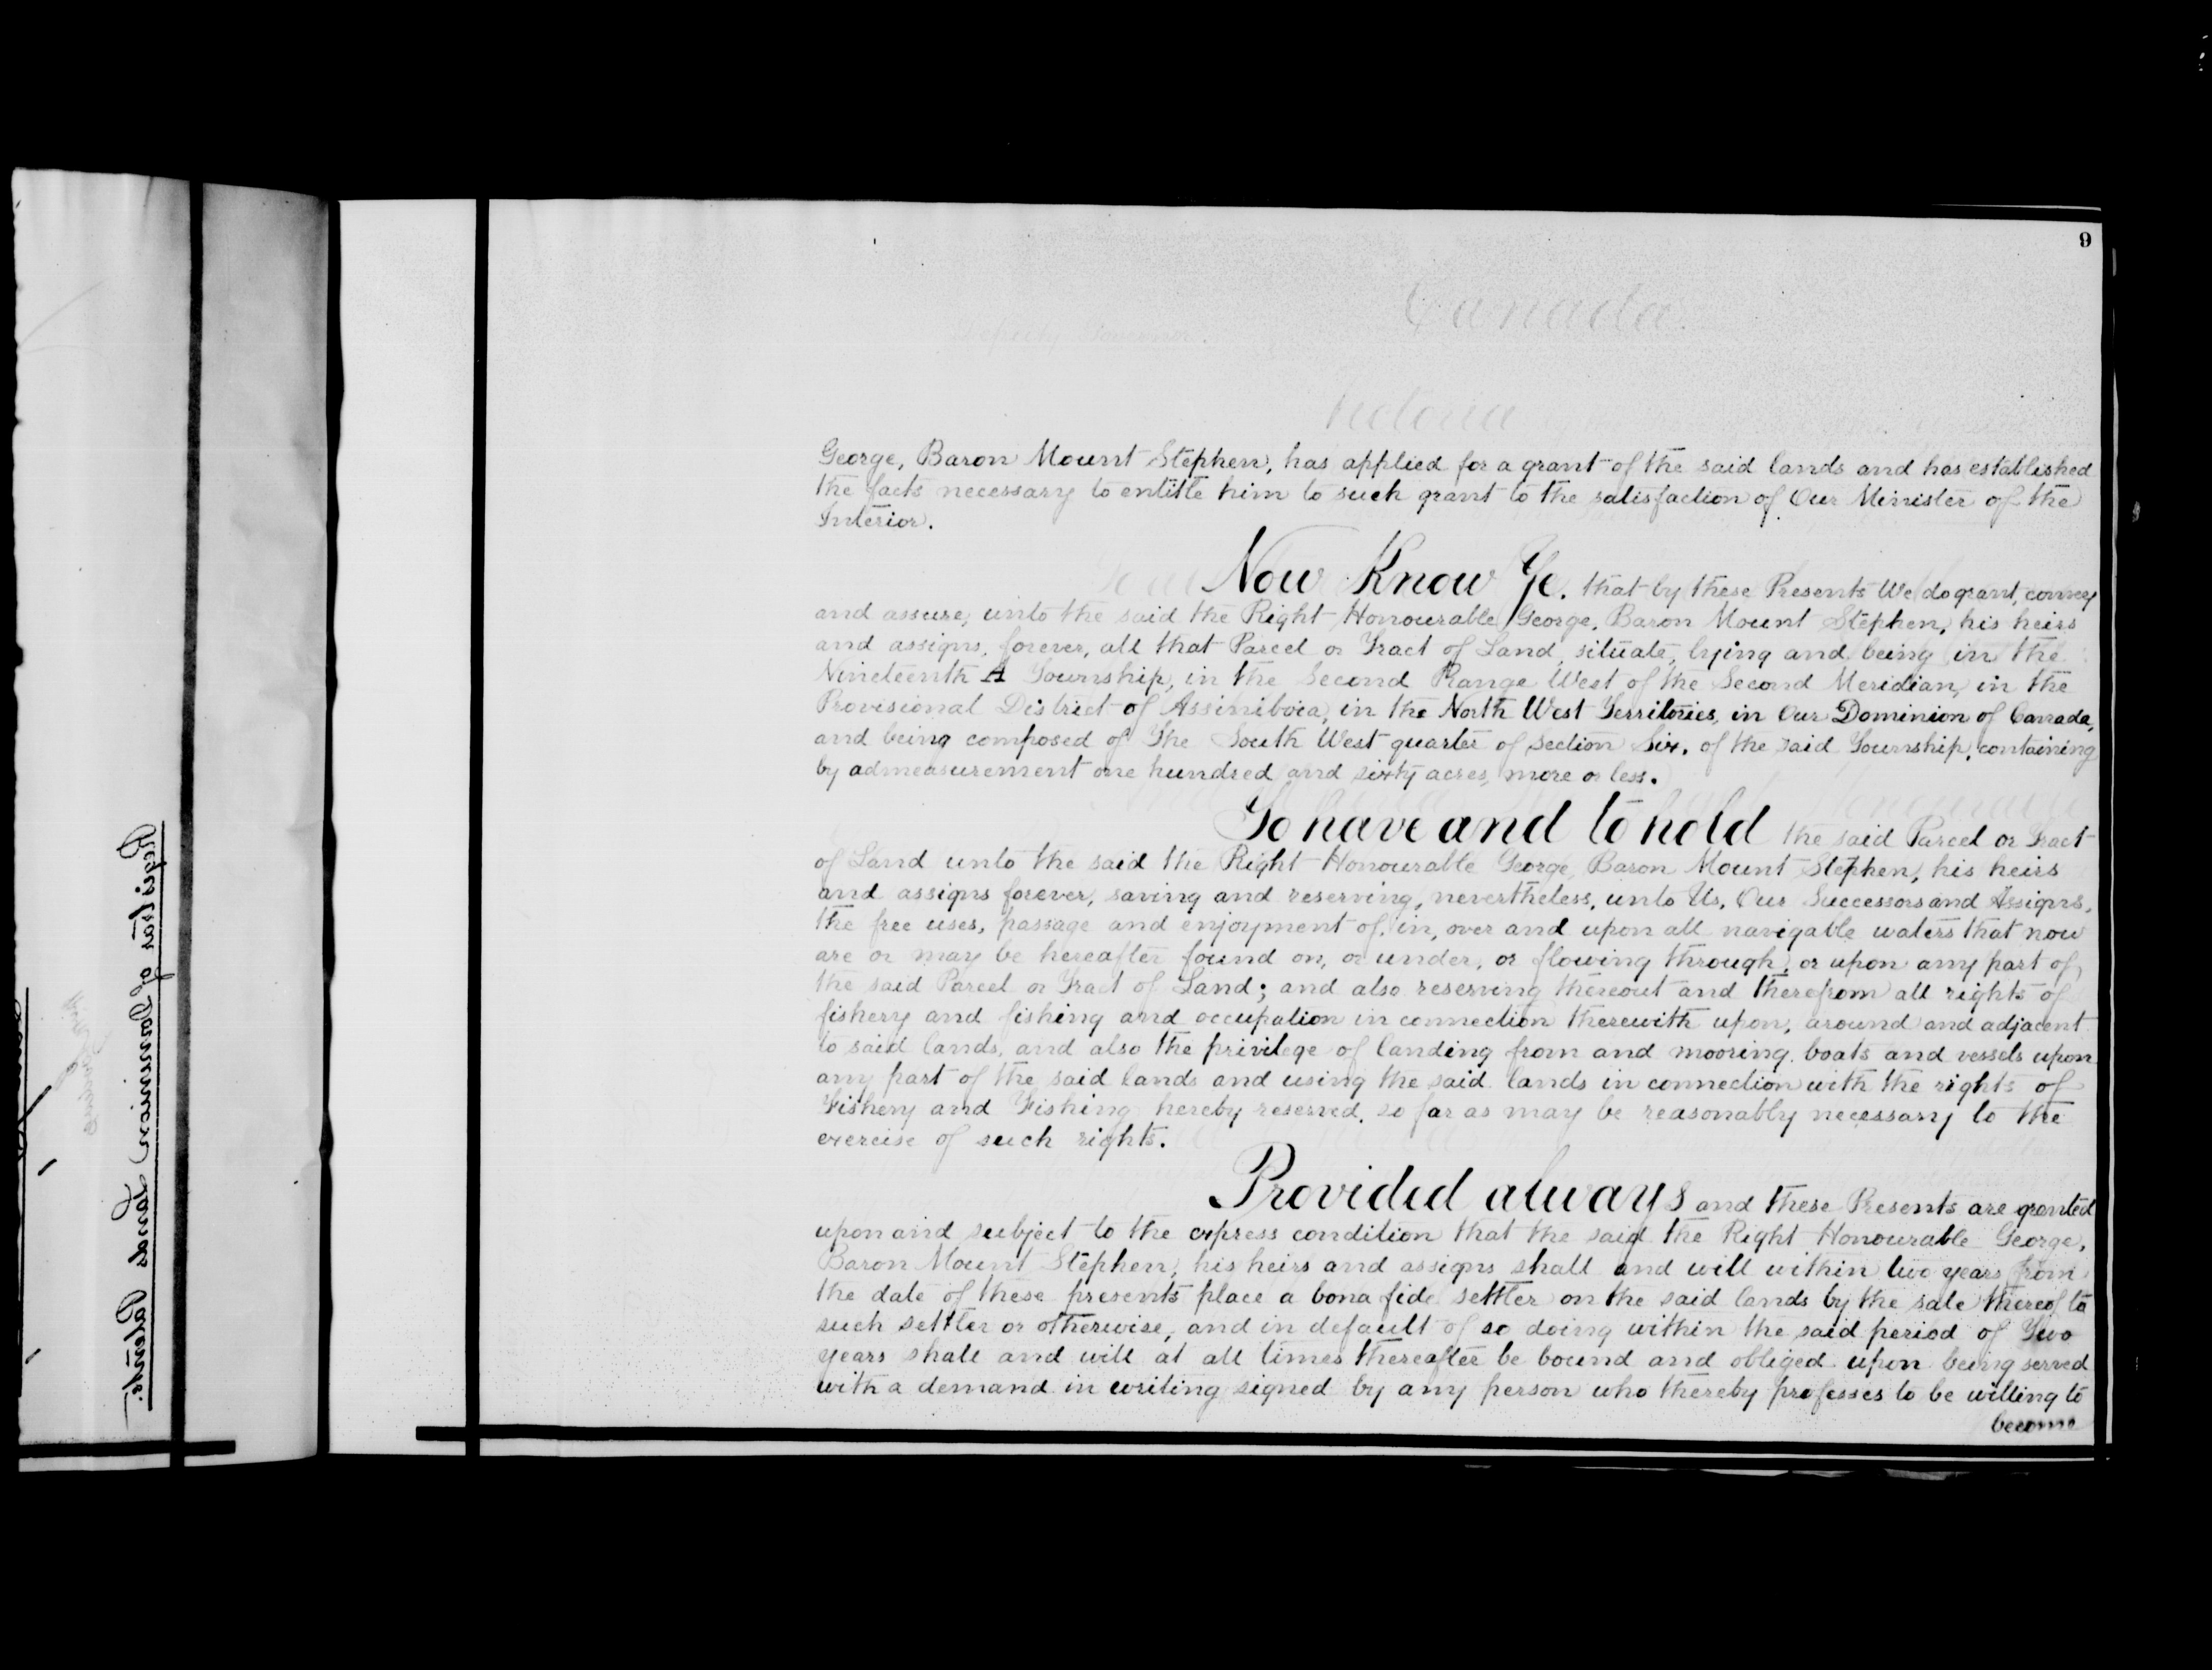 9
Canada.
George, Baron Mount Stephen, has applied for a grant of the said lands and has established
the facts necessary to entitle him to such grant to the satisfaction of Our Minister of the
Interior.
Now Know Ye. that by these Presents We do grant, convey
and assure, unto the said the Right Honourable George, Baron Mount Stephen, his heirs
and assigns, forever, all that Parcel or Tract of Land, situate, lying and being in the
Nineteenth A Township, in the Second Range West of the Second Meridian, in the
Provisional District of Assiniboia, in the North West Territories, in Our Dominion of Canada,
and being composed of The South West quarter of Section Six, of the said Township, containing
by admeasurement one hundred and sixty acres, more or less.
To have and to hold the said Parcel or Tract
of Land unto the said the Right Honourable George, Baron Mount Stephen, his heirs
and assigns forever, saving and reserving, nevertheless, unto Us, Our Successors and Assigns,
the free uses, passage and enjoyment of, in, over and upon all navigable waters that now
are or may be hereafter found on, or under, or flowing through, or upon any part of,
the said Parcel or Tract of Land; and also reserving thereout and therefrom all rights of
fishery and fishing and occupation in connection therewith upon, around and adjacent
to said lands, and also the privilege of landing from and mooring, boats and vessels upon
any part of the said lands and using the said lands in connection with the rights of
Fishery and Fishing hereby reserved, so far as may be reasonably necessary to the
exercise of such rights.
Provided always and these Presents are granted
upon and subject to the express condition that the said the Right Honourable George,
Baron Mount Stephen, his heirs and assigns shall and will within two years from
the date of these presents place a bona fide settler on the said lands by the sale thereof to
such settler or otherwise, and in default of so doing within the said period of Two
years shall and will at all times thereafter be bound and obliged upon being served
with a demand in writing signed by any person who thereby professes to be willing to
become
Registrar of Dominion Lands Patents.